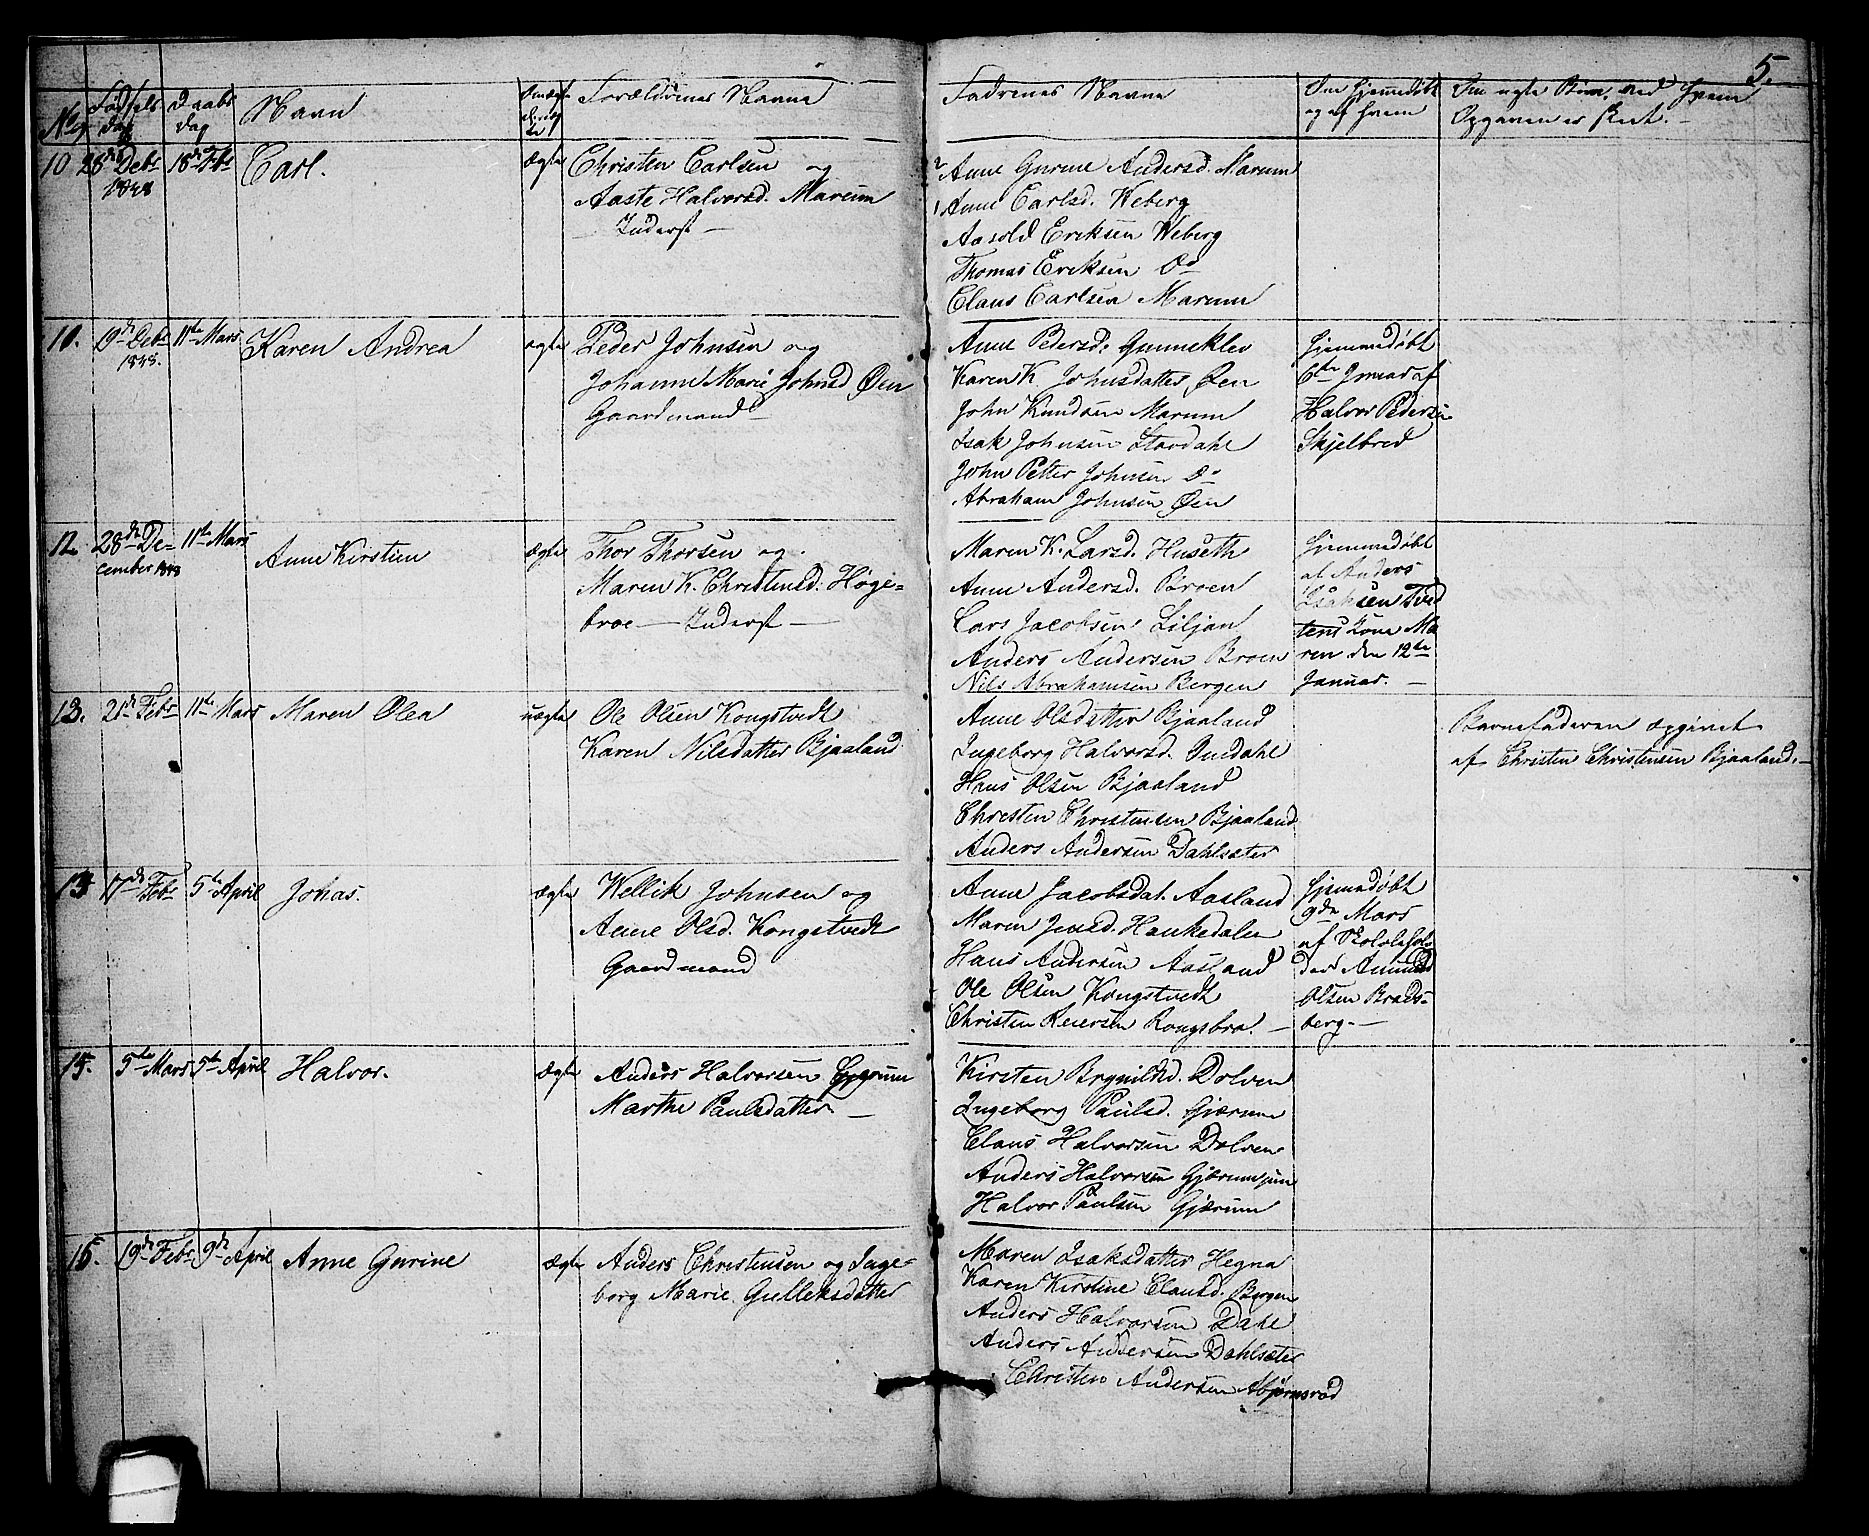 5.
No
Fødsels
dag
Daabs
dag
Navn
Forældrenes Navne
Fadrenes Navne
Om hjemmedøbt
og af hvem
Om uægte Børn, ved hvem
Opgaven er skeet. -
10 28de Debr 1848 18de Fbr Carl. ægte
Christen Carlsen og
Aaste Halvorsd. Marum
- Inderst -
2 Anne Gurine Andersd. Marum
1 Anne Carlsd. Weberg
Aasold Eriksen Weberg
Thomas Eriksen Do
Claus Carlsen Marum
10. 19de Debr 1848. 11te Mars Karen Andrea ægte
Peder Johnsen og
Johanne Marie Johnsd Øen
Gaardmand -
Anne Pedersd: Gunneklev
Karen K. Johnsdatter Øen
John Knudsen Marum
Isak Johnsen Stordahl
John Petter Johnsen Do
Abraham Johnsen Øen
Hjemmedøbt
6te Januar af
Halvor Pedersen
Skjelbred
12. 28de De-
cember 1848 11te Mars Anne Kirstien ægte
Thor Thorsen og
Maren K. Christensd: Høge-
broe - Inderst -
Maren K. Larsd. Huseth
Anne Andersd. Broen
Lars Jacobsen Liljan
Anders Andersen Broen
Nils Abrahamsen Bergen
Hjemmedøbt
af Anders
Isaksen Tved
tens Kone Ma
ren den 12te
Januar. -
13. 21de Febr 11te Mars Maren Olea uægte
Ole Olsen Kongstvedt
Karen Nilsdatter Bjaaland
Anne Olsdatter Bjaaland
Ingeborg Halvorsd.
Hans Olsen Bjaaland
Christen Christensen Bjaaland
Anders Andersen Dahlsæter
Barnefaderen opgivet
af Christen Christensen Bjaaland. -
13 17de Febr 5te April Johas. ægte
Wellik Johnsen og
Anne Olsd. Kongstvedt
Gaardmand
Anne Jacobsdat. Aasland
Maren Jensd. Haukedalen
Hans Andersen Aasland
Ole Olsen Kongstvedt
Christen Reiersen Rongsbro. -
Hjemmedøbt
9de Mars
af Skolehol-
der Amund
Olsen Brads-
berg. -
15. 5te Mars 5te April Halvor. ægte
Anders Halvorsen Gjærum
Marthe Paulsdatter. -
Kirsten Brynilds. Dolven
Ingeborg Paulsd. Gjærum
Claus Halvorsen Dolven
Anders Halvorsen Gjærum jun
Halvor Paulsen Gjærum
16. 19de Febr 9de April Anne Gurine ægte
Anders Christensen og Inge-
borg Marie Gulleksdatter
Maren Isaksdatter Hegna
Karen Kirstine Clausd. Bergen
Anders Halvorsen Dahl
Anders Andersen Dahlsæter
Christen Andersen Abjørnsrød